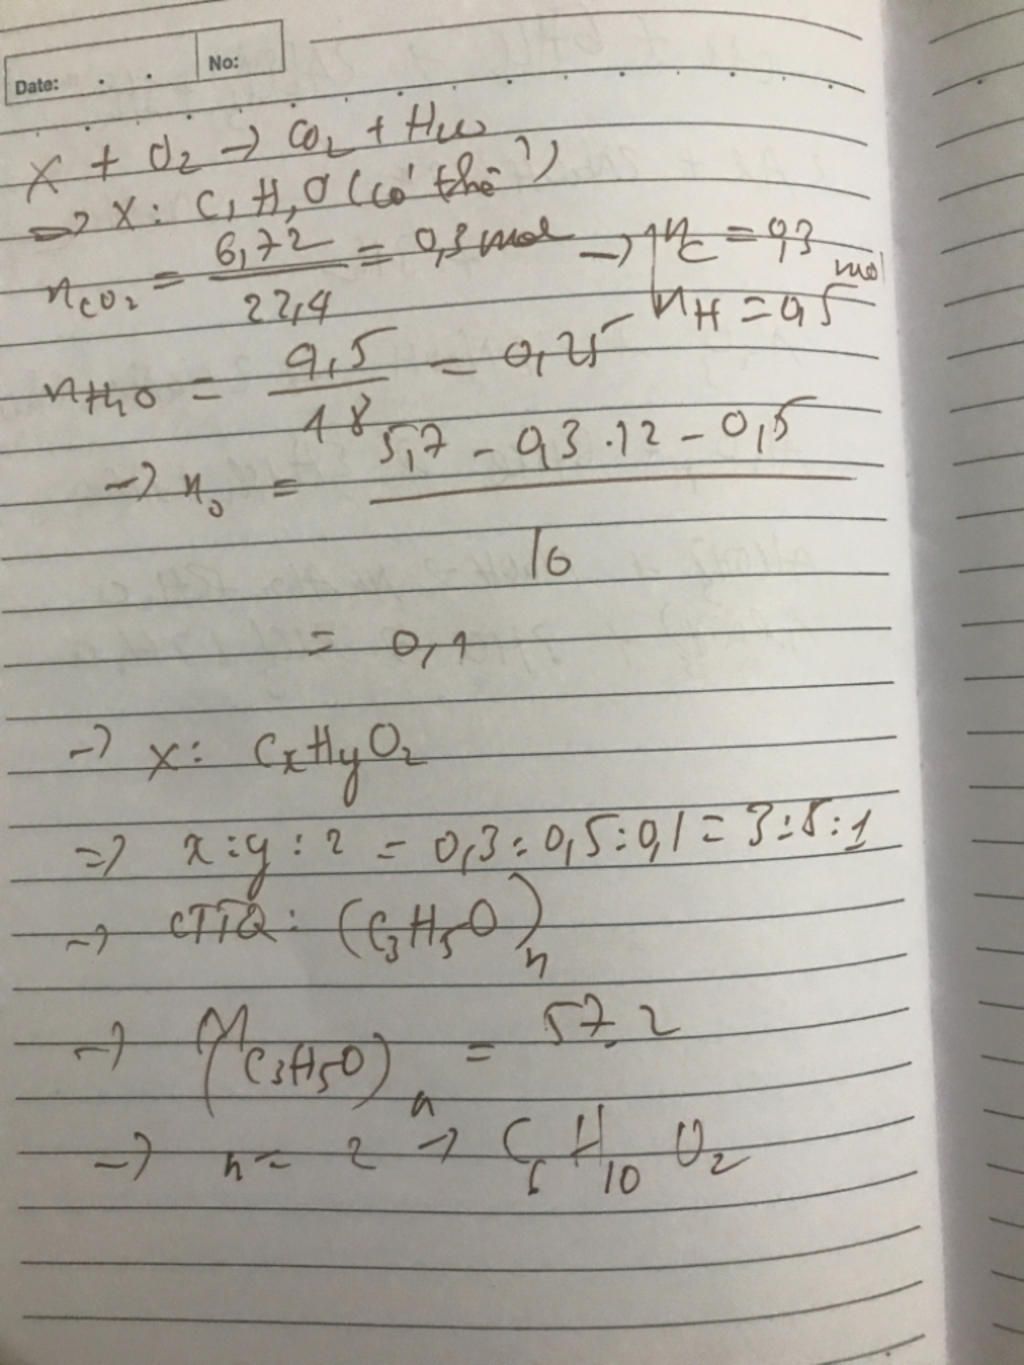 Date: . . No:
X + O2 → CO2 + H2O
=> X: C, H, O (có thể)
nCO2 = 6,72 / 22,4 = 0,3 mol → { nC = 0,3 mol
nH = 0,5
nH2O = 4,5 / 18 = 0,25
→ nO = 5,7 - 0,3 . 12 - 0,5 / 16
= 0,1
→ X: CxHyO2
=> x : y : 2 = 0,3 : 0,5 : 0,1 = 3 : 5 : 1
→ CTTQ: (C3H5O)n
→ M(C3H5O)n = 57.2
→ n = 2 → C6H10O2